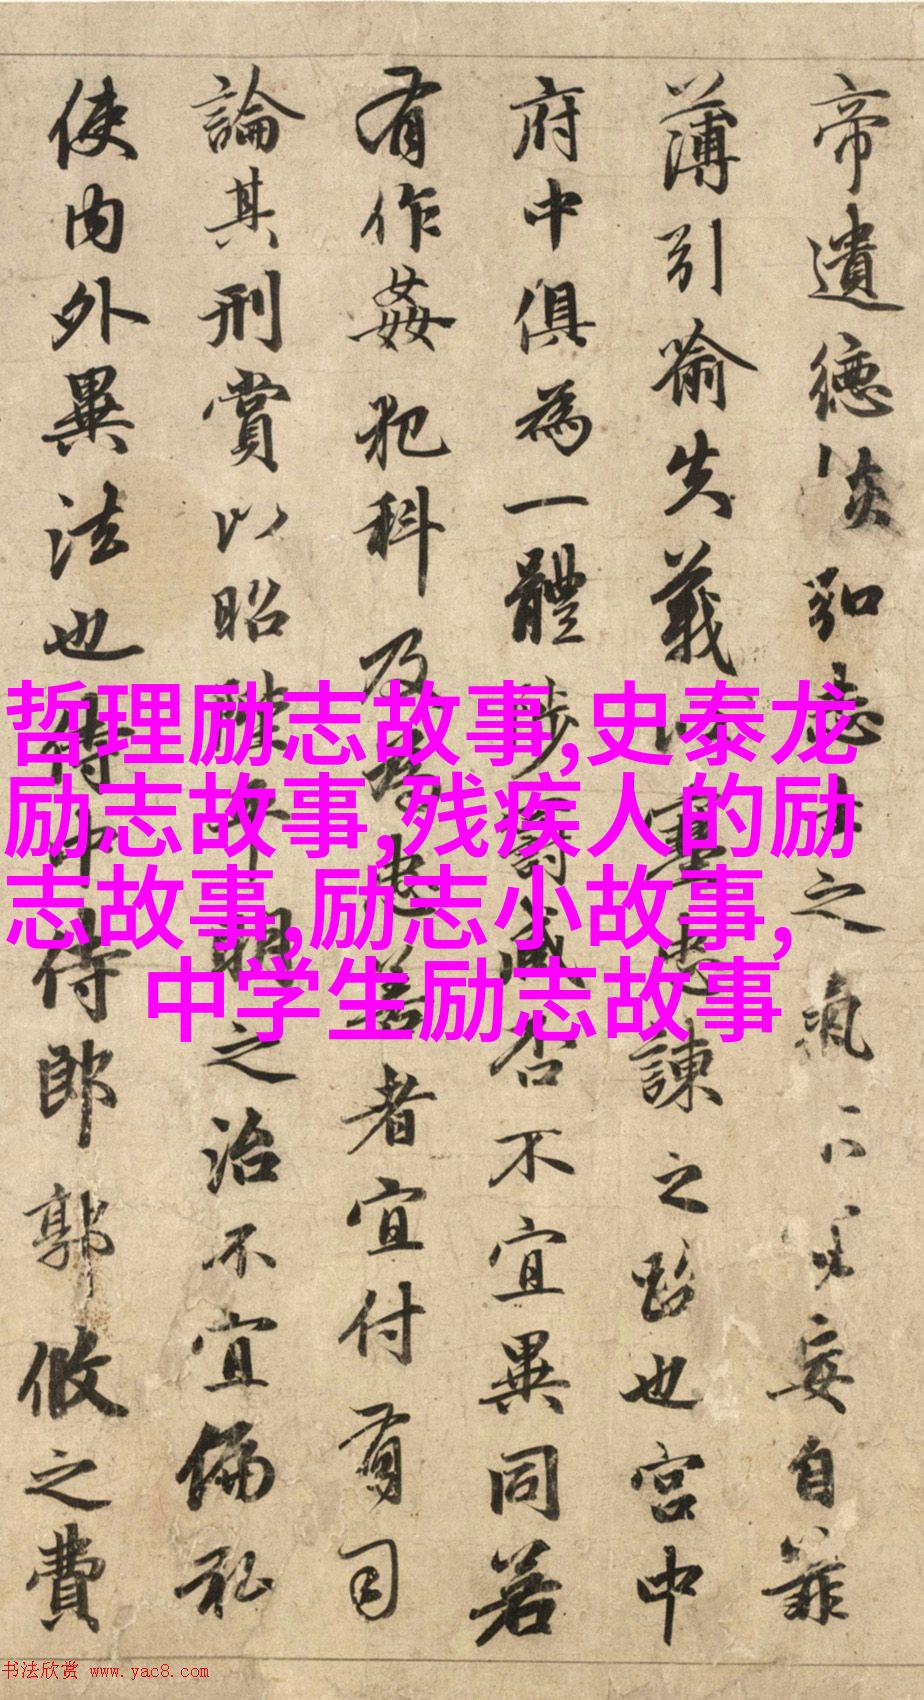 帝遺德恢弘志士之氣不宜妄自菲
薄引喻失義以塞忠諫之路也宮中
府中俱為一體陟罰臧否不宜異同若
有作姦犯科及為忠善者宜付有司
論其刑賞以昭陛平明之治不宜偏私
使內外異法也侍中侍郎郭攸之費
哲理励志故事,史泰龙
励志故事,残疾人的励
志故事,励志小故事,
中学生励志故事
书法欣赏 www.yac8.com